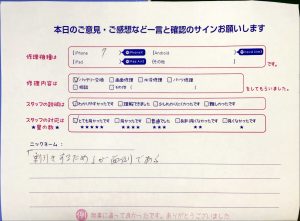 本日のご意見・ご感想など一言と確認のサインお願いします
修理機種は
iPhone 7
iPhone
Android
iPad
iPad Air
その他
です。
修理内容は
バッテリー交換 画面修理 水没修理 パーツ修理
相談 その他
をしてもらいました。
スタッフの説明は
わかりやすかったです 理解できました 少しわかりにくかったです 難しかったです
スタッフの対応は
とても良かったです 良かったです 普通でした あまり良くなかったです 良くなかったです
★星の数★
★★★★★ ★★★★ ★★★ ★★ ★
ニックネーム：
割引をするため
である
当店に通って良かったです。ありがとうございました